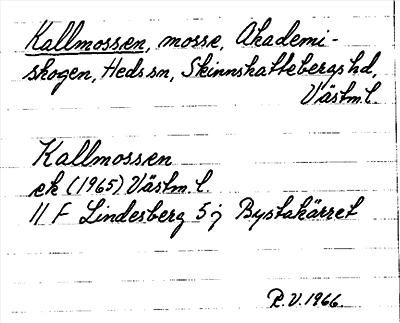 Kallmossen, mosse, Akademi-
skogen, Heds sn, Skinnskattebergs hd,
Västm.l.
Kallmossen
ek (1965) Västm.l.
11 F Lindesberg 5 j Bystakärret
R.V. 1966.